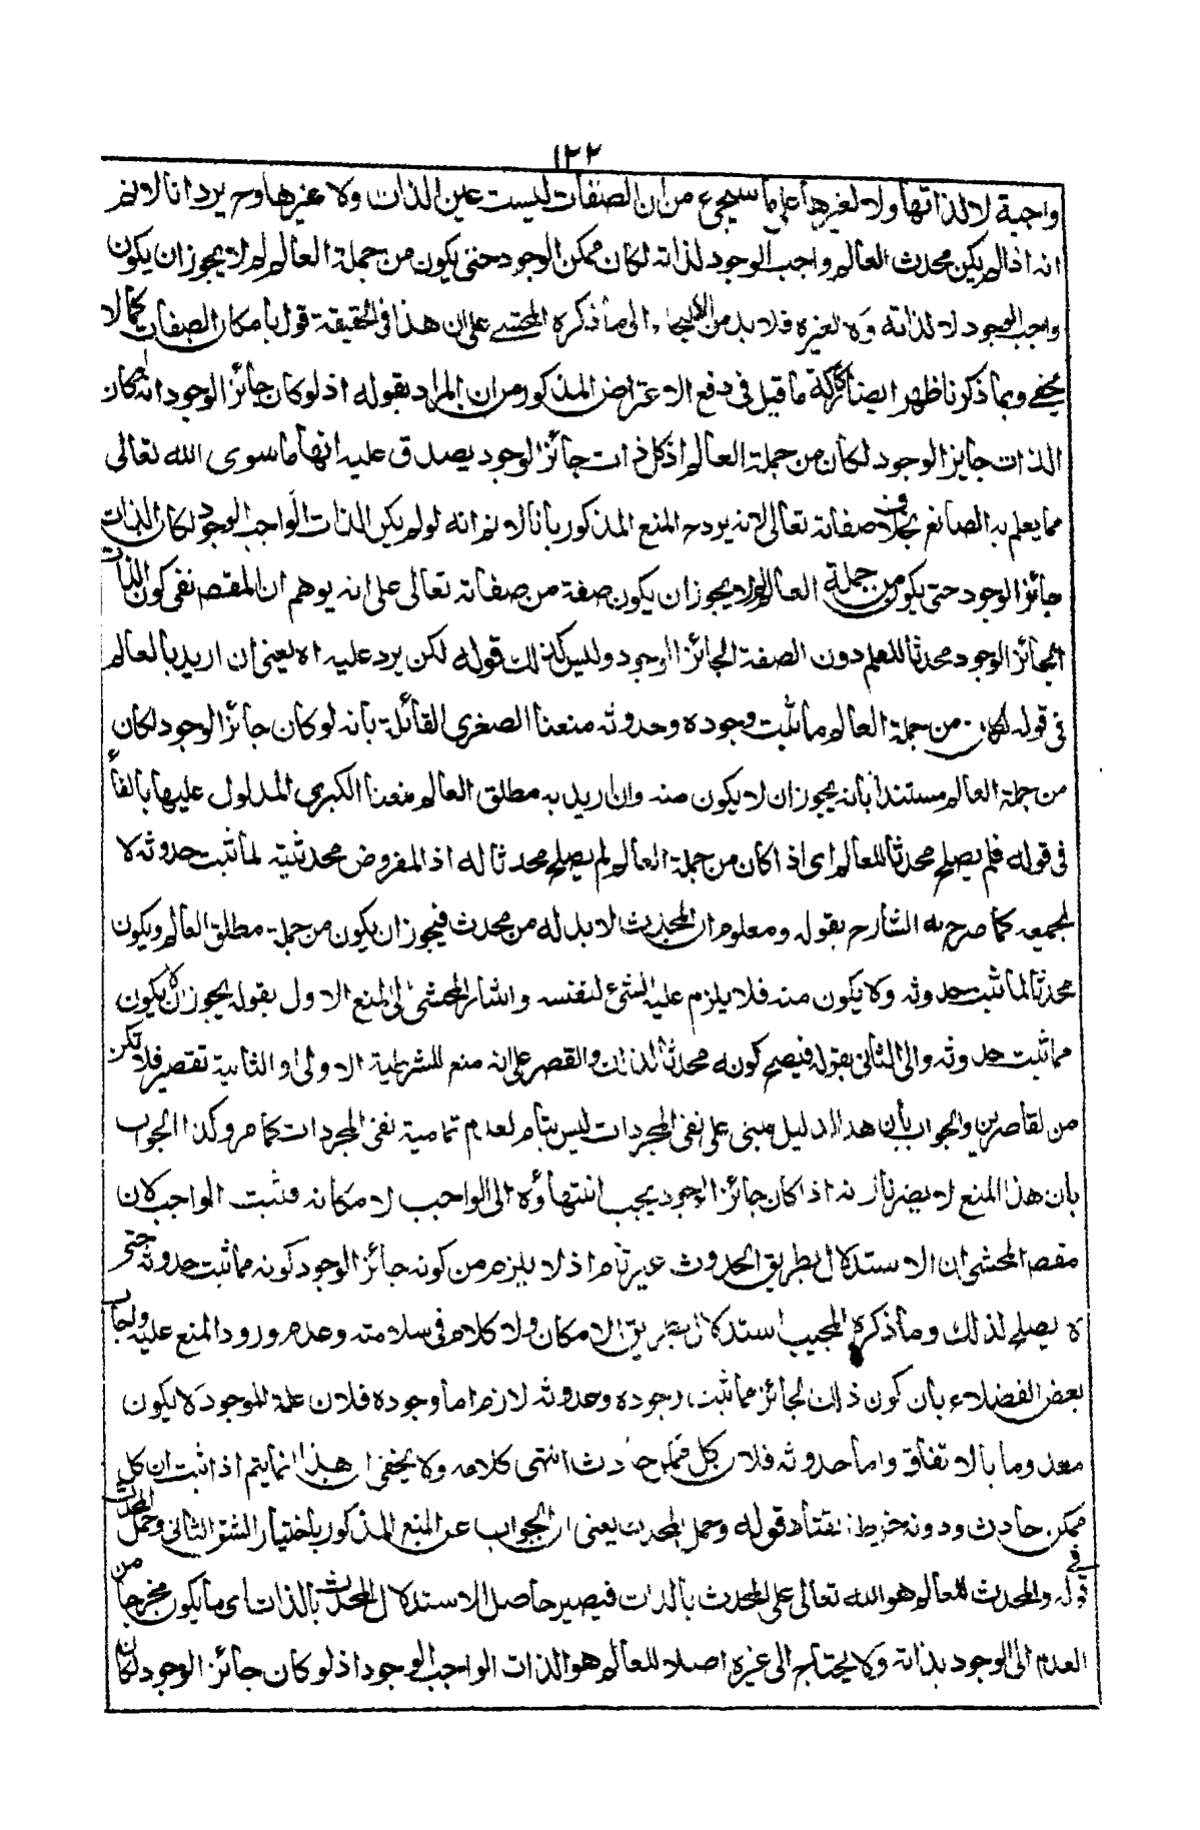 ١٢٢
واجبة لا لذاتها ولا لغيرها على ما سيجيء من ان الصفات ليست عين الذات ولا غيرها وح يرد انا لا نم
انه اذا لم يكن محدث العالم واجب الوجود لذاته لكان ممكن الوجود حتى يكون من جملة العالم لم لا يجوز ان يكون
واجب الوجود لا لذاته ولا لغيره فلا بد من الالتجاء الى ما ذكره المحشي على ان هذا في الحقيقة قول بامكان الصفات كما لا
يخفى وبما ذكرنا ظهر ايضا ركاكة ما قيل في دفع الاعتراض المذكور من ان المراد بقوله اذ لو كان جائز الوجود انه لو كان
الذات جايز الوجود لكان من جملة العالم اذ كل ذات جائز الوجود يصدق عليه انها ما سوى الله تعالى
مما يعلم به الصانع بخلاف صفاته تعالى لانه يرد ح المنع المذكور بانا لا نم انه لو لم يكن الذات الواجب الوجود لكان الذات
جائز الوجود حتى يكون من جملة العالم لم لا يجوز ان يكون صفة من صفاته تعالى على انه يوهم ان المقصد نفي كون الذات
الجائز الوجود محدثا للعالم دون الصفة الجائز الوجود وليس كذلك قوله لكن يرد عليه اه يعني ان اريد بالعالم
في قوله لكان من جملة العالم ما ثبت وجوده وحدوثه منعنا الصغرى القائلة بانه لو كان جائز الوجود لكان
من جملة العالم مستندا بانه يجوز ان لا يكون منه وان اريد به مطلق العالم منعنا الكبرى المدلول عليها بالفاء
في قوله فلم يصلح محدثا للعالم اى اذ كان من جملة العالم لم يصلح محدثا له اذ المفروض محدثيته لما ثبت حدوثه لا
لجميعه كما صرح به الشارح بقوله ومعلوم ان المحدث لا بد له من محدث فيجوز ان يكون من جملة مطلق العالم ويكون
محدثا لما ثبت حدوثه ولا يكون منه فلا يلزم علية الشئ لنفسه واشار المحشي الى المنع الاول بقوله يجوز ان لا يكون
مما ثبت حدوثه والى الثاني بقوله فيصح كونه محدثا لذلك والقصر على انه منع للشرطية الاولى او الثانية تقصير فلا تكن
من القاصرين والجواب بان هذا الدليل مبنى على نفى المجردات ليس بتام لعدم تمامية نفى المجردات كما مر وكذا الجواب
بان هذا المنع لا يضرنا لانه اذا كان جائز الوجود يجب انتهاؤه الى الواجب لامكانه فثبت الواجب لان
مقصد المحشي ان الاستدلال بطريق الحدوث غير تام اذ لا يلزم من كونه جائز الوجود كونه مما ثبت حدوثه حتى
لا يصلح لذلك وما ذكره المجيب استدلال بطريق الامكان ولا كلام في سلامته وعدم ورود المنع عليه واجاب
بعض الفضلاء بان كون ذلك الجائز مما ثبت وجوده وحدوثه لازم اما وجوده فلان علة الموجود لا يكون
معدوما بالاتفاق واما حدوثه فلان كل ممكن حادث انتهى كلامه ولا يخفى ان هذا انما يتم اذا ثبت ان كل
ممكن حادث ودونه خرط القتاد قوله وحمل المحدث يعني ان الجواب عن المنع المذكور باختيار الشق الثاني وحمل المحدث
في قوله والمحدث للعالم هو الله تعالى على المحدث بالذات فيصير حاصل الاستدلال المحدث بالذات اى ما يكون مخرجا من
العدم الى الوجود بذاته ولا يحتاج الى غيره اصلا للعالم هو الذات الواجب الوجود اذ لو كان جائز الوجود لكان